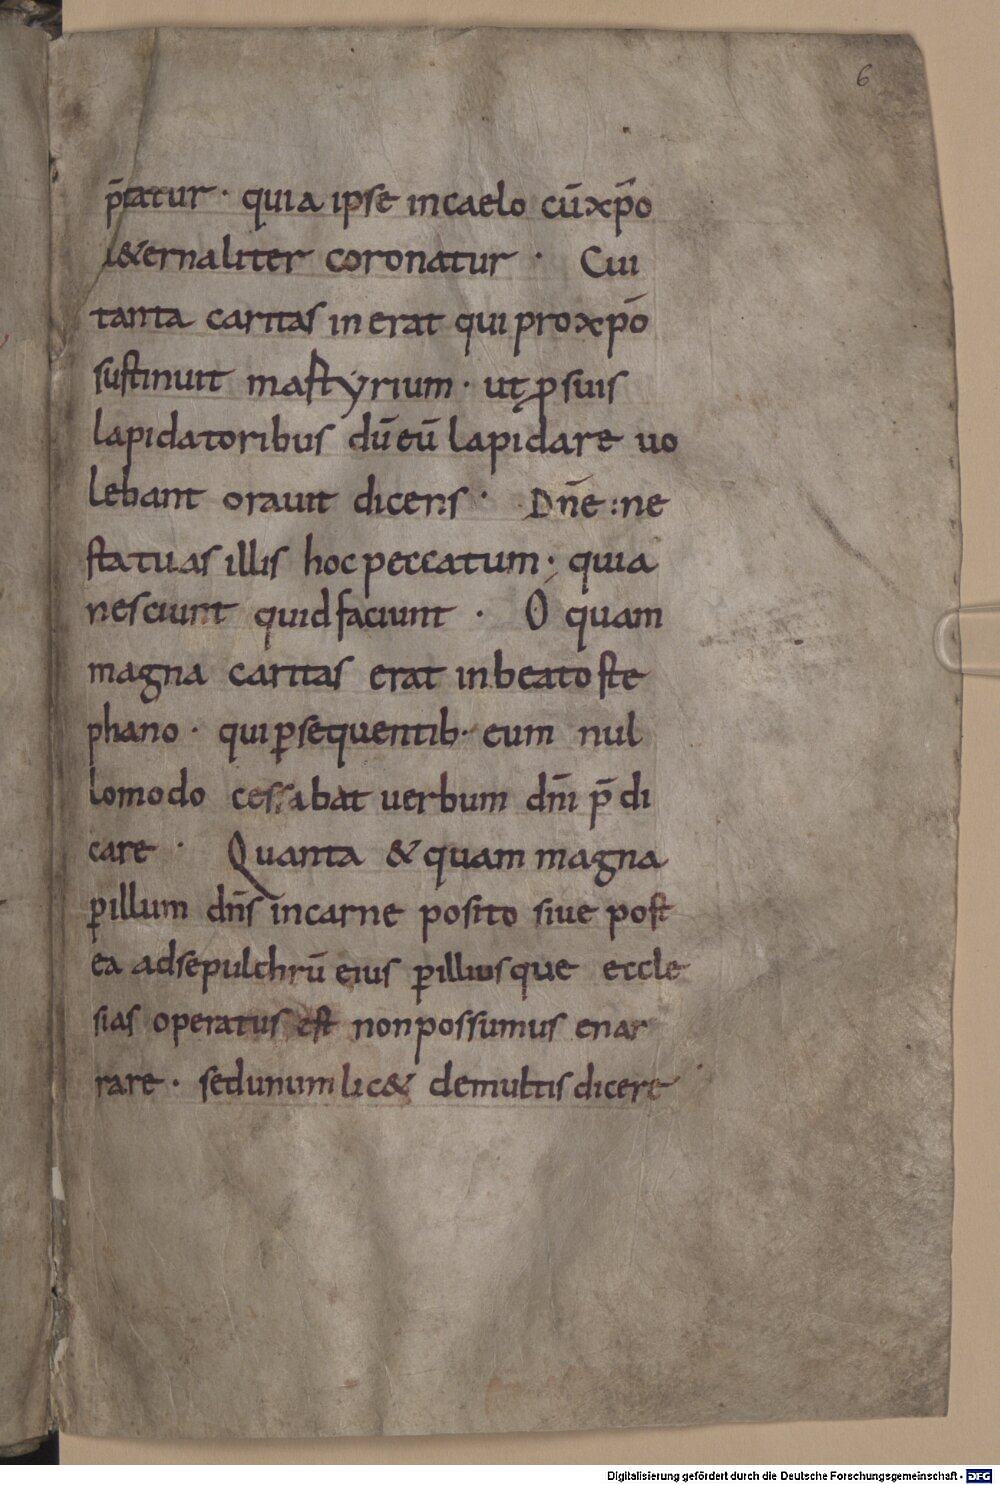 6
p̄tatur · quia ipse incaelo cū xp̄o
&ernaliter coronatur · Cui
tanta caritas in erat qui pro xp̄o
sustinuit mastẏrium · ut ꝓ suis
lapidatoribus dū eū lapidare uo
lebant orauit dicens · Dn̄e : ne
statuas illis hoc peccatum · quia
nesciunt quid faciunt · Ó quam
magna caritas erat in beato ste
phano · qui ꝑsequentib· eum nul
lomodo cessabat uerbum dn̄i p̄di
care · Quanta & quam magna
ꝑ illum dn̄s in carne posito siue post
ea ad sepulchrū eius ꝑ illius que eccle
sias operatus est non possumus enar
rare · sed unum lic& de multis dicere
Digitalisierung gefördert durch die Deutsche Forschungsgemeinschaft - DFG